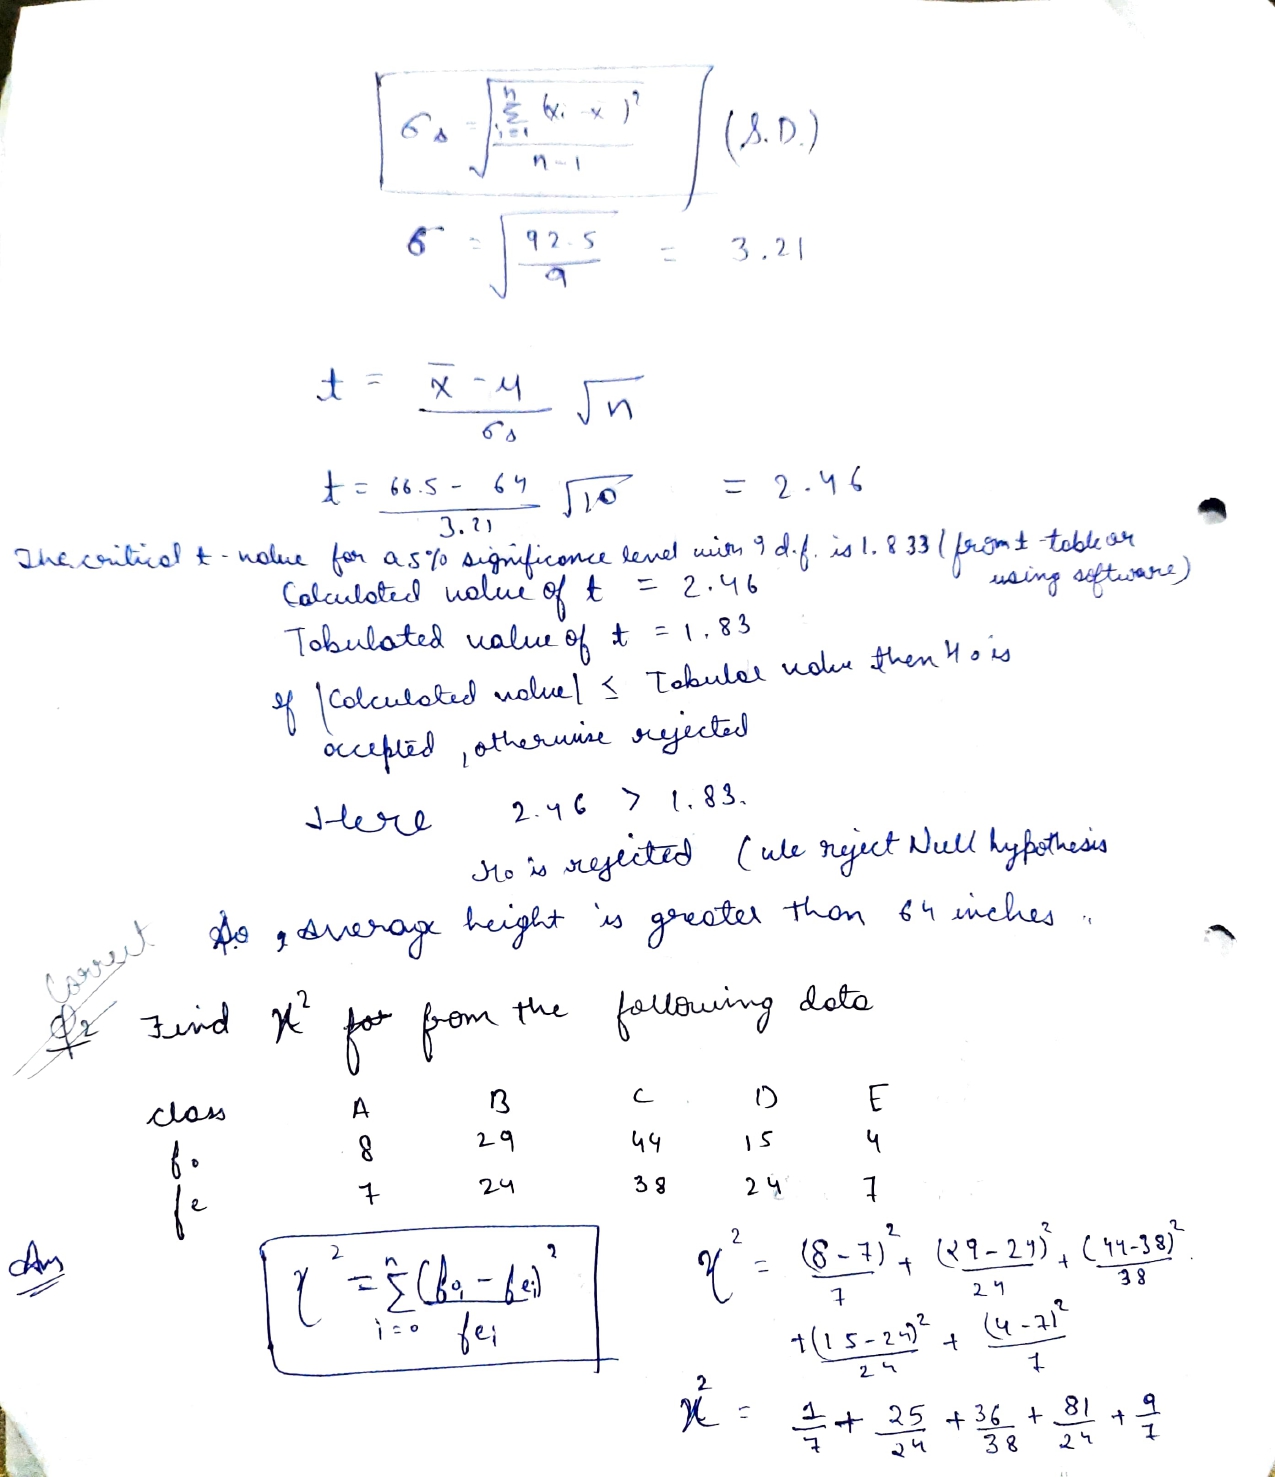 σs = √(Σ_{i=1}^{n} (xi - x)² / n-1) (S.D.)
σ = √(92.5 / 9) = 3.21
t = (x̄ - μ / σs) √n
t = (66.5 - 64 / 3.21) √10 = 2.46
The critical t-value for a 5% significance level with 9 d.f. is 1.833 (from t table or using software)
Calculated value of t = 2.46
Tabulated value of t = 1.83
If |Calculated value| ≤ Tabular value then H0 is
accepted, otherwise rejected
Here 2.46 > 1.83.
H0 is rejected (we reject Null hypothesis
So, average height is greater than 64 inches.
Correct
Q2 Find χ² for from the following data
class A B C D E
fo 8 29 44 15 4
fe 7 24 38 24 7
Ans χ² = Σ_{i=0}^{n} (foi - fei)² / fei
χ² = (8-7)²/7 + (29-24)²/24 + (44-38)²/38
+ (15-24)²/24 + (4-7)²/7
χ² = 1/7 + 25/24 + 36/38 + 81/24 + 9/7